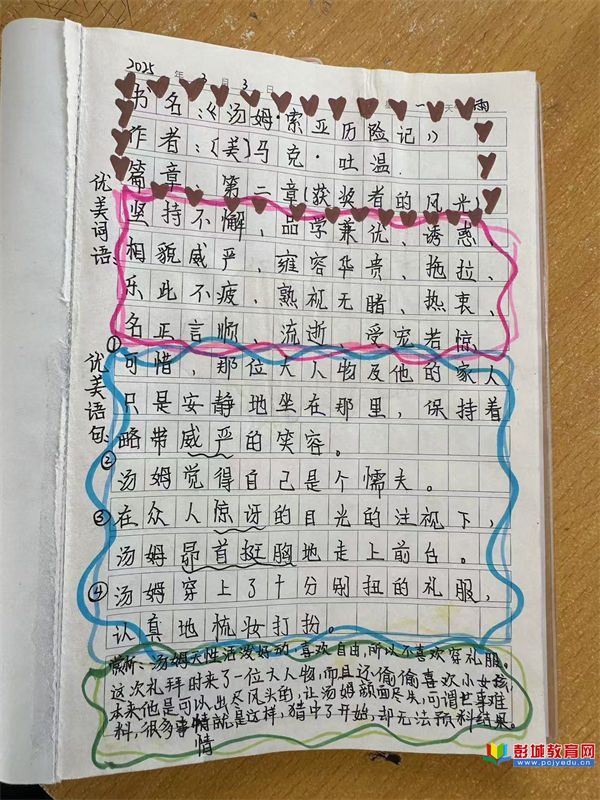 2025年3月3日 一 天 雨
书名:《汤姆·索亚历险记》
作者:(美)马克·吐温.
篇章: 第二章(获奖者的风光)
优美词语:
坚持不懈、品学兼优、诱惑、
相貌威严、雍容华贵、拖拉、
乐此不疲、熟视无睹、热衷、
名正言顺、流逝、受宠若惊
优美语句:
①可惜,那位大人物及他的家人
只是安静地坐在那里,保持着
略带威严的笑容。
②汤姆觉得自己是个懦夫。
③在众人惊讶的目光的注视下,
汤姆昂首挺胸地走上前台。
④汤姆穿上了十分别扭的礼服,
认真地梳妆打扮。
赏析:汤姆天性活泼好动,喜欢自由,所以不喜欢穿礼服。
这次礼拜时来了一位大人物,而且还偷偷喜欢小女孩,
本来他是可以出尽风头的,让汤姆颜面尽失,可谓世事难
料,很多事情就是这样,猜中了开始,却无法预料结果。
情
彭城教育网
www.pcjyedu.cn